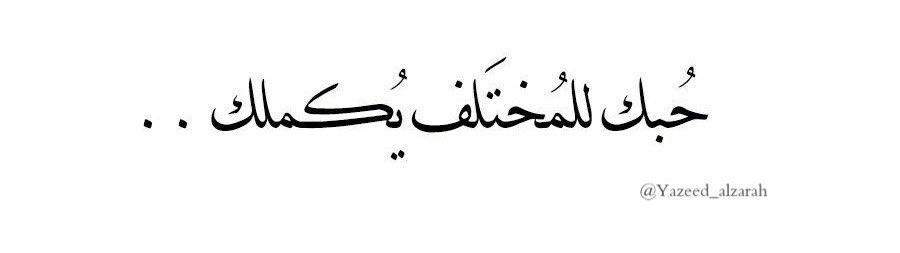 حُبك للمُختَلف يُكملك . .
@Yazeed_alzarah